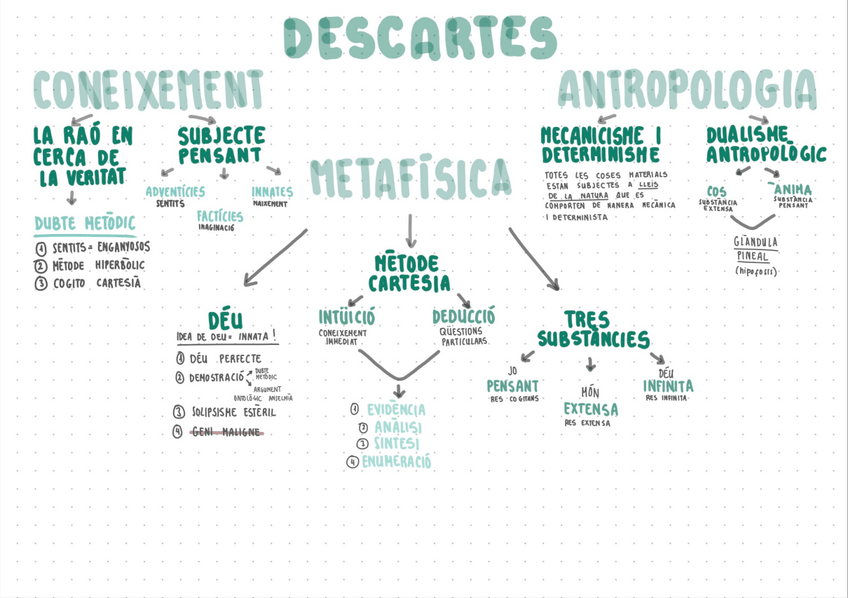 DESCARTES
CONEIXEMENT
LA RAÓ EN
CERCA DE
LA VERITAT
DUBTE METÒDIC
1 SENTITS = ENGANYOSOS
2 MÈTODE HIPERBÒLIC
3 COGITO CARTESIÀ
SUBJECTE
PENSANT
ADVENTÍCIES
SENTITS
FACTÍCIES
IMAGINACIÓ
INNATES
NAIXEMENT
METAFÍSICA
DÉU
IDEA DE DEU = INNATA!
1 DÉU PERFECTE
2 DEMOSTRACIÓ
DUBTE
METÒDIC
ARGUMENT
ONTOLÒGIC ANSELMIÀ
3 SOLIPSISME ESTÈRIL
4 GENI MALIGNE
MÈTODE
CARTESIÀ
INTÜICIÓ
CONEIXEMENT
IMMEDIAT
DEDUCCIÓ
QÜESTIONS
PARTICULARS
1 EVIDÈNCIA
2 ANÀLISI
3 SÍNTESI
4 ENUMERACIÓ
TRES
SUBSTÀNCIES
JO
PENSANT
RES COGITANS
MÓN
EXTENSA
RES EXTENSA
DÉU
INFINITA
RES INFINITA
ANTROPOLOGIA
MECANICISME I
DETERMINISME
TOTES LES COSES MATERIALS
ESTAN SUBJECTES A LLEIS
DE LA NATURA QUE ES
COMPORTEN DE MANERA MECÀNICA
I DETERMINISTA
DUALISME
ANTROPOLÒGIC
COS
SUBSTÀNCIA
EXTENSA
ÀNIMA
SUBSTÀNCIA
PENSANT
GLÀNDULA
PINEAL
(hipofisis)